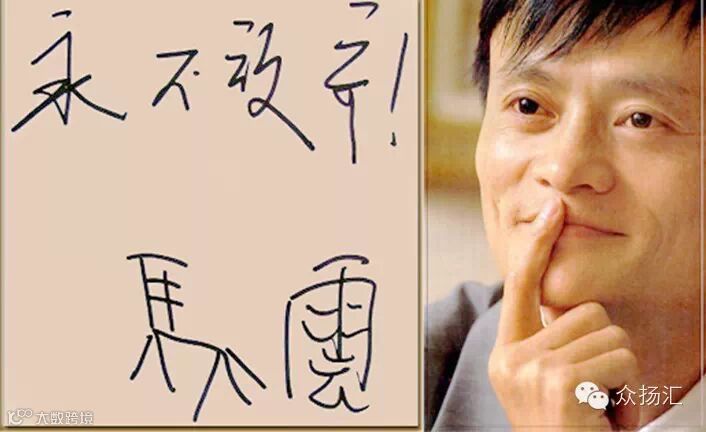 永不放弃!
馬雲
众扬汇
大数跨境